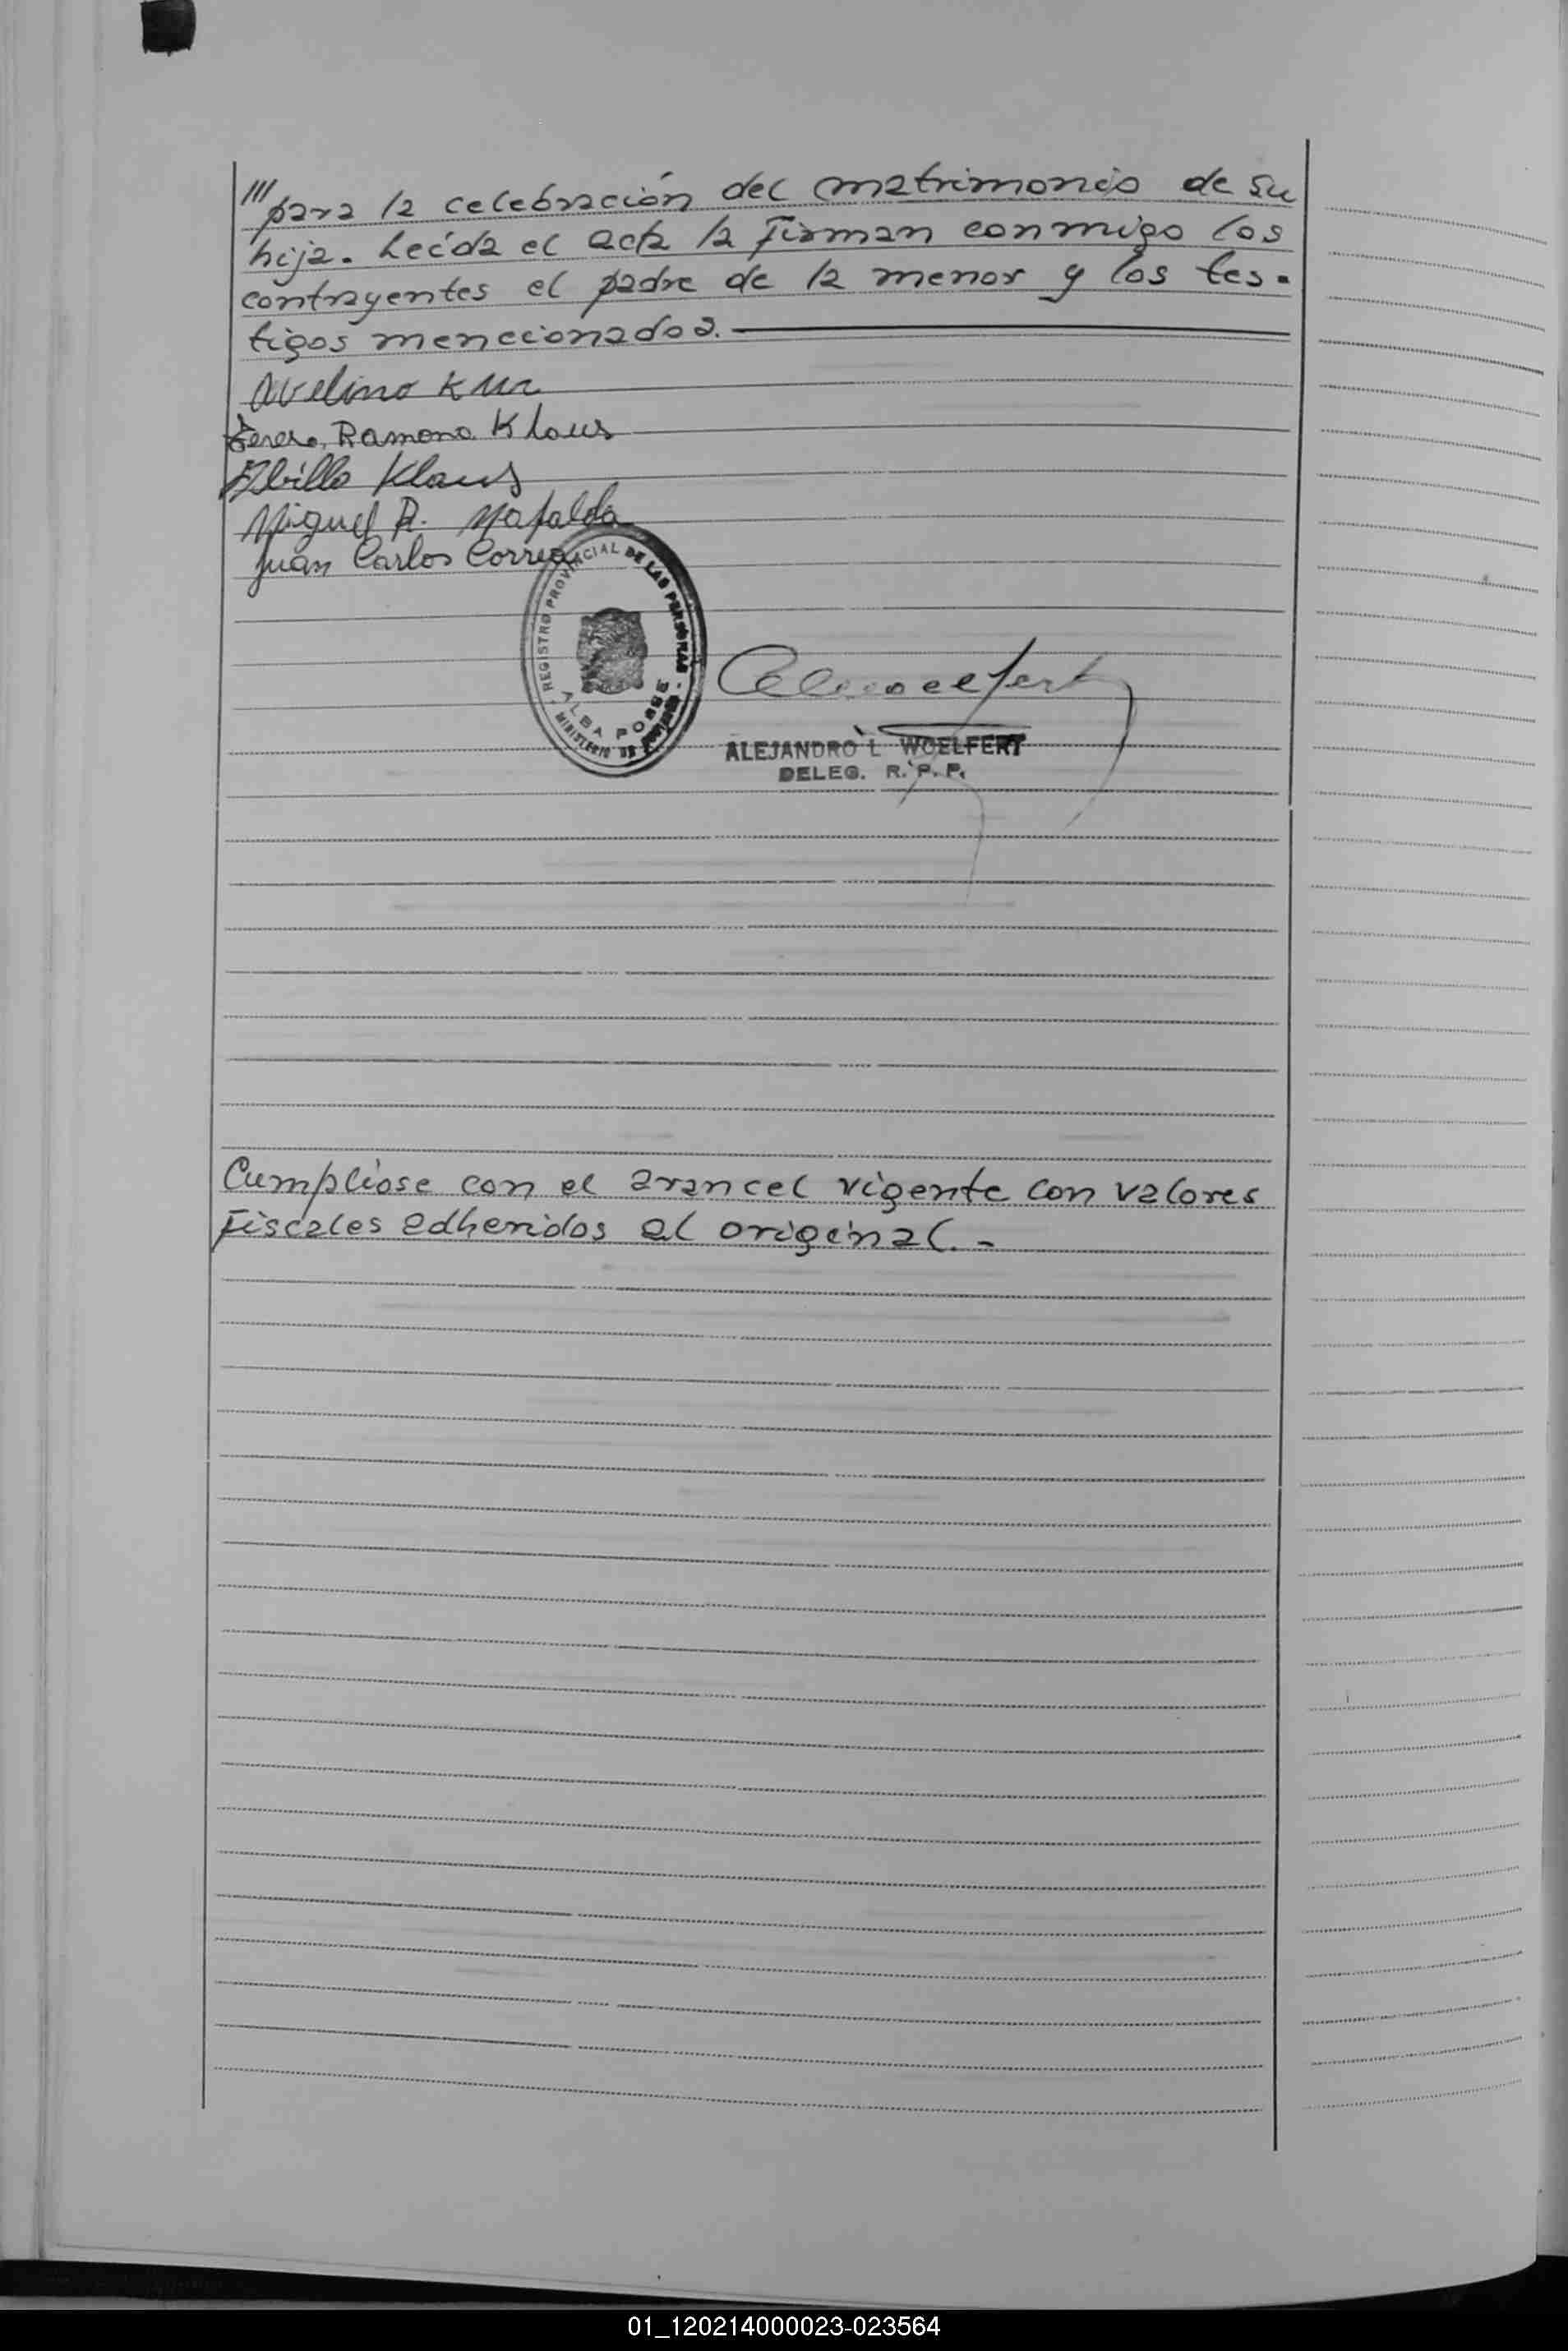 /// para la celebración del matrimonio de su
hija. Leída el acta la firman conmigo los
contrayentes el padre de la menor y los tes-
tigos mencionados.
Avelino
Teresa Ramona Klaus
Klaus
Miguel R. Mafalda
Juan Carlos Correa
REGISTRO PROVINCIAL DE LAS PERSONAS
ALBA POSSE
MINISTERIO DE
ALEJANDRO L. WOELFERT
DELEG. R. P. P.
Cumplióse con el arancel vigente con valores
fiscales adheridos al original.-
01_120214000023-023564